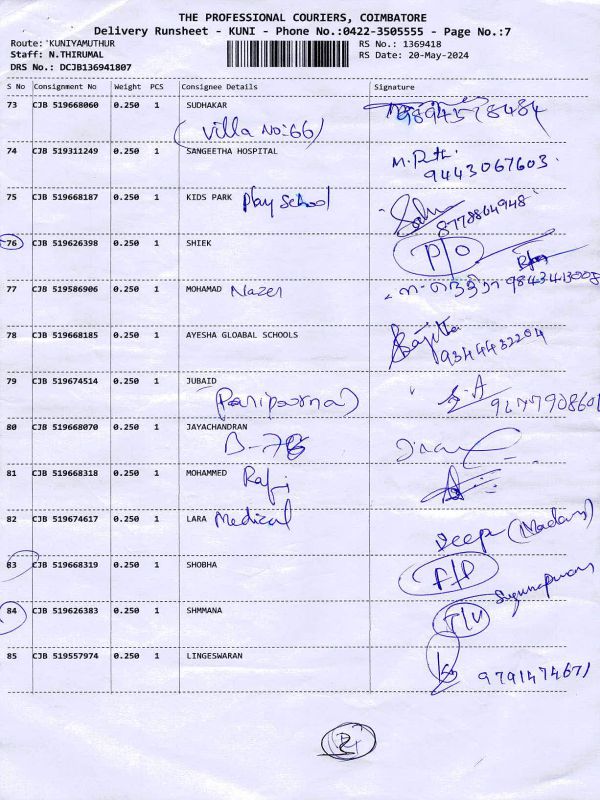 THE PROFESSIONAL COURIERS, COIMBATORE
Delivery Runsheet - KUNI - Phone No.:0422-3505555 - Page No.:7
Route: KUNIYAMUTHUR RS No.: 1369418
Staff: N.THIRUMAL RS Date: 20-May-2024
DRS No.: DCJB136941807
S No Consignment No Weight PCS Consignee Details Signature
73 CJB 519668060 0.250 1 SUDHAKAR
(Villa No:66) 9894578484
74 CJB 519311249 0.250 1 SANGEETHA HOSPITAL
9443067603
75 CJB 519668187 0.250 1 KIDS PARK Play School
8778864948
76 CJB 519626398 0.250 1 SHIEK P/O
77 CJB 519586906 0.250 1 MOHAMAD Nazer 9843413008
78 CJB 519668185 0.250 1 AYESHA GLOABAL SCHOOLS Sajitha
9344432204
79 CJB 519674514 0.250 1 JUBAID
(Paripoorna)
80 CJB 519668070 0.250 1 JAYACHANDRAN
81 CJB 519668318 0.250 1 MOHAMMED Rafi
82 CJB 519674617 0.250 1 LARA Medical
Deepa (Madam)
83 CJB 519668319 0.250 1 SHOBHA
84 CJB 519626383 0.250 1 SHMMANA
85 CJB 519557974 0.250 1 LINGESWARAN 9791474671